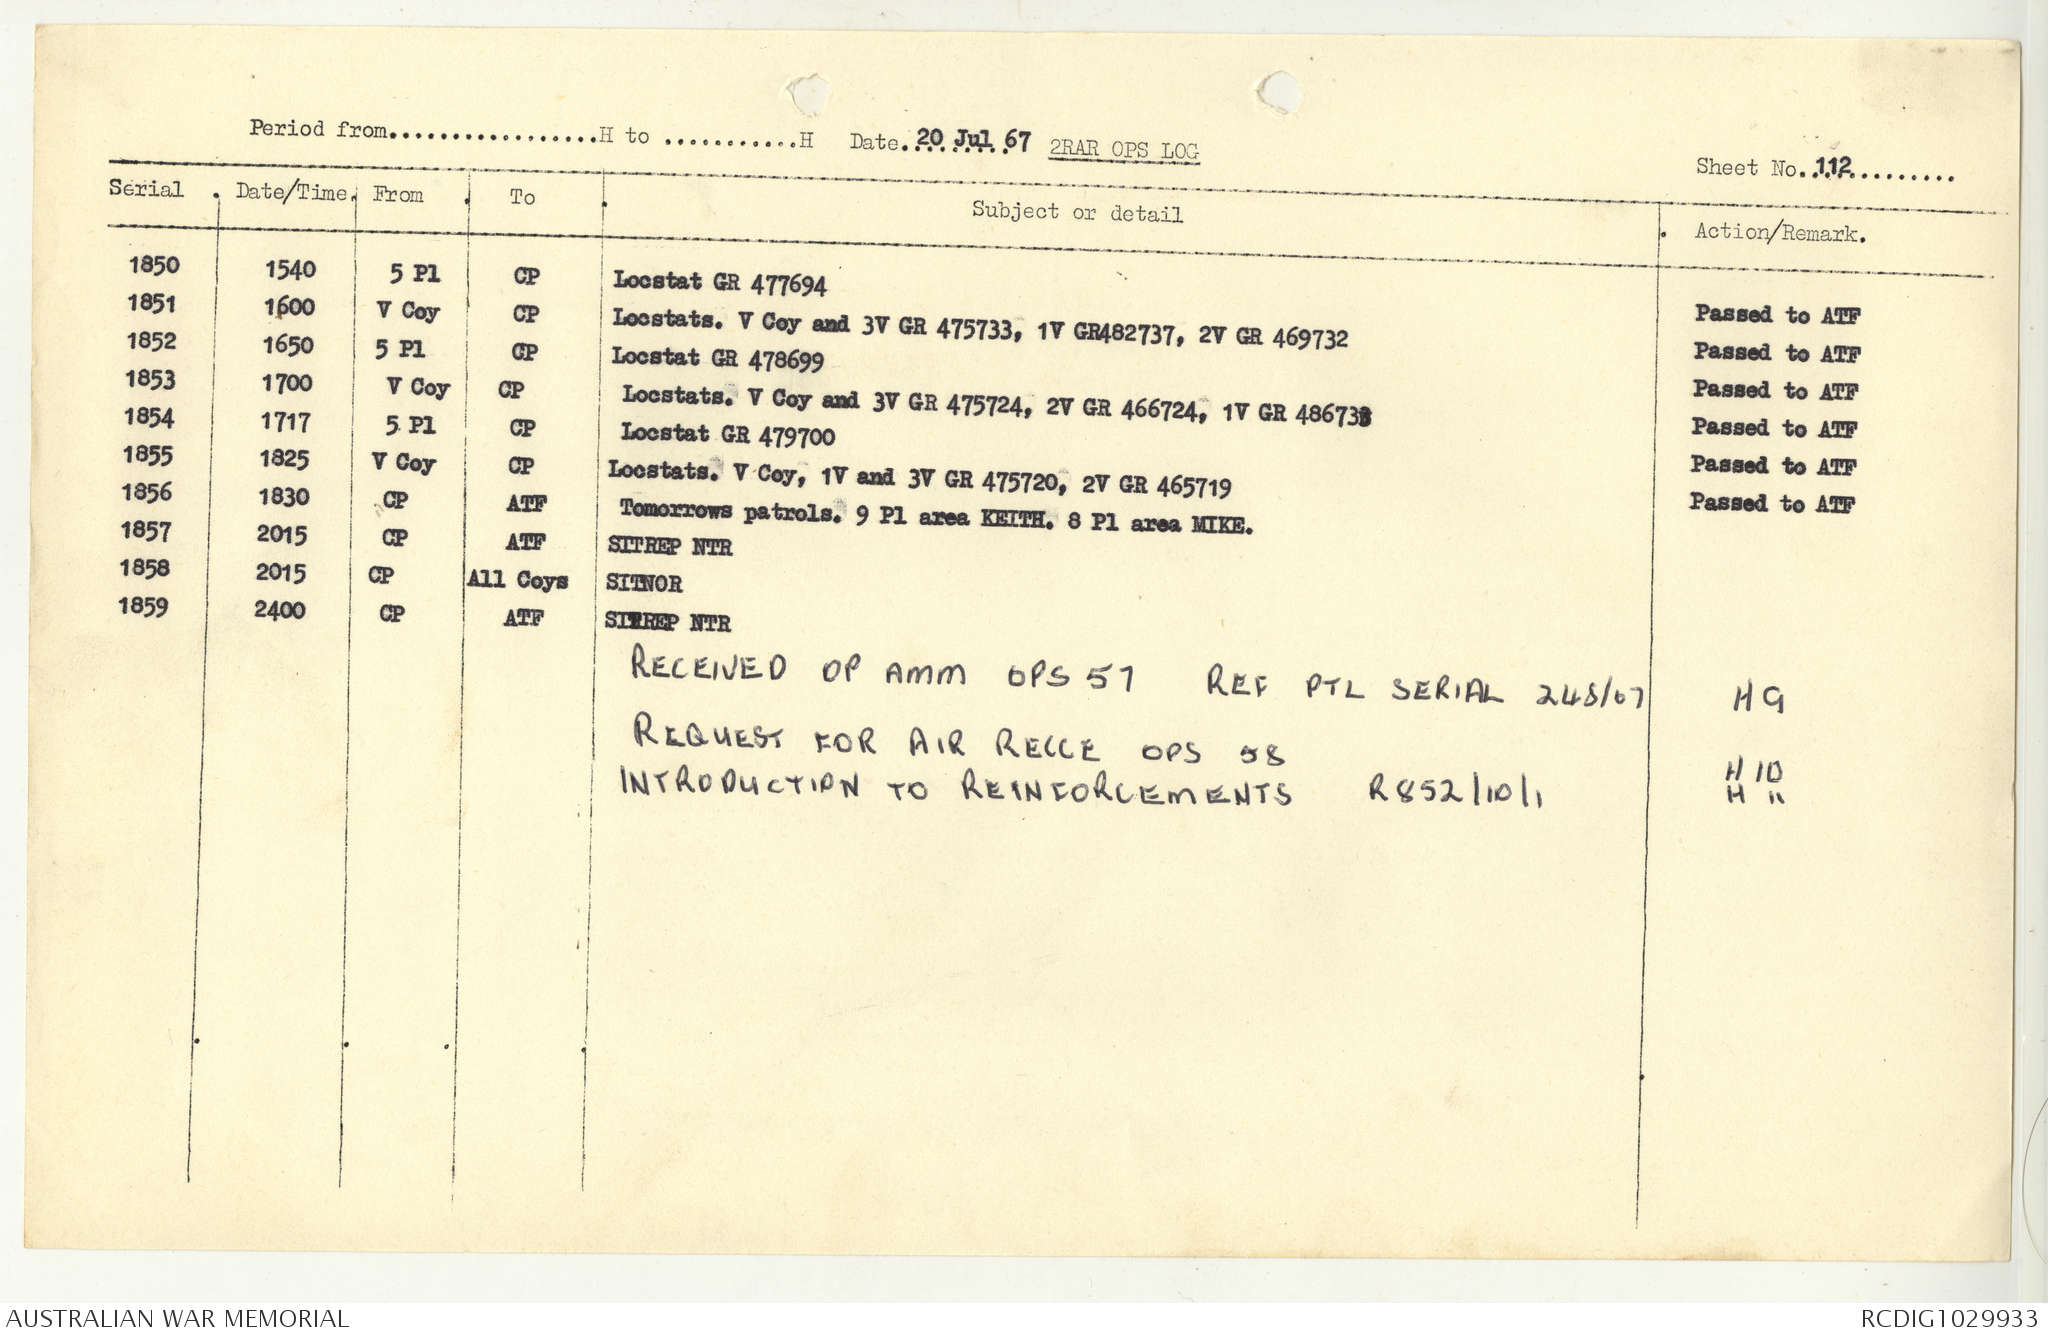 Period from.................H to ...........H Date.20 Jul 67 2RAR OPS LOG
Sheet No.112............
Serial . Date/Time. From . To . Subject or detail . Action/Remark.
1850 1540 5 Pl CP Locstat GR 477694 Passed to ATF
1851 1600 V Coy CP Locstats. V Coy and 3V GR 475733, 1V GR482737, 2V GR 469732 Passed to ATF
1852 1650 5 Pl CP Locstat GR 478699 Passed to ATF
1853 1700 V Coy CP Locstats. V Coy and 3V GR 475724, 2V GR 466724, 1V GR 486733 Passed to ATF
1854 1717 5 Pl CP Locstat GR 479700 Passed to ATF
1855 1825 V Coy CP Locstats. V Coy, 1V and 3V GR 475720, 2V GR 465719 Passed to ATF
1856 1830 CP ATF Tomorrows patrols. 9 Pl area KEITH. 8 Pl area MIKE.
1857 2015 CP ATF SITREP NTR
1858 2015 CP All Coys SITNOR
1859 2400 CP ATF SITREP NTR
RECEIVED OP AMM OPS 57 REF PTL SERIAL 248/67 H 9
REQUEST FOR AIR RECCE OPS 58 H 10
INTRODUCTION TO REINFORCEMENTS R852/10/1 H 11
AUSTRALIAN WAR MEMORIAL RCDIG1029933